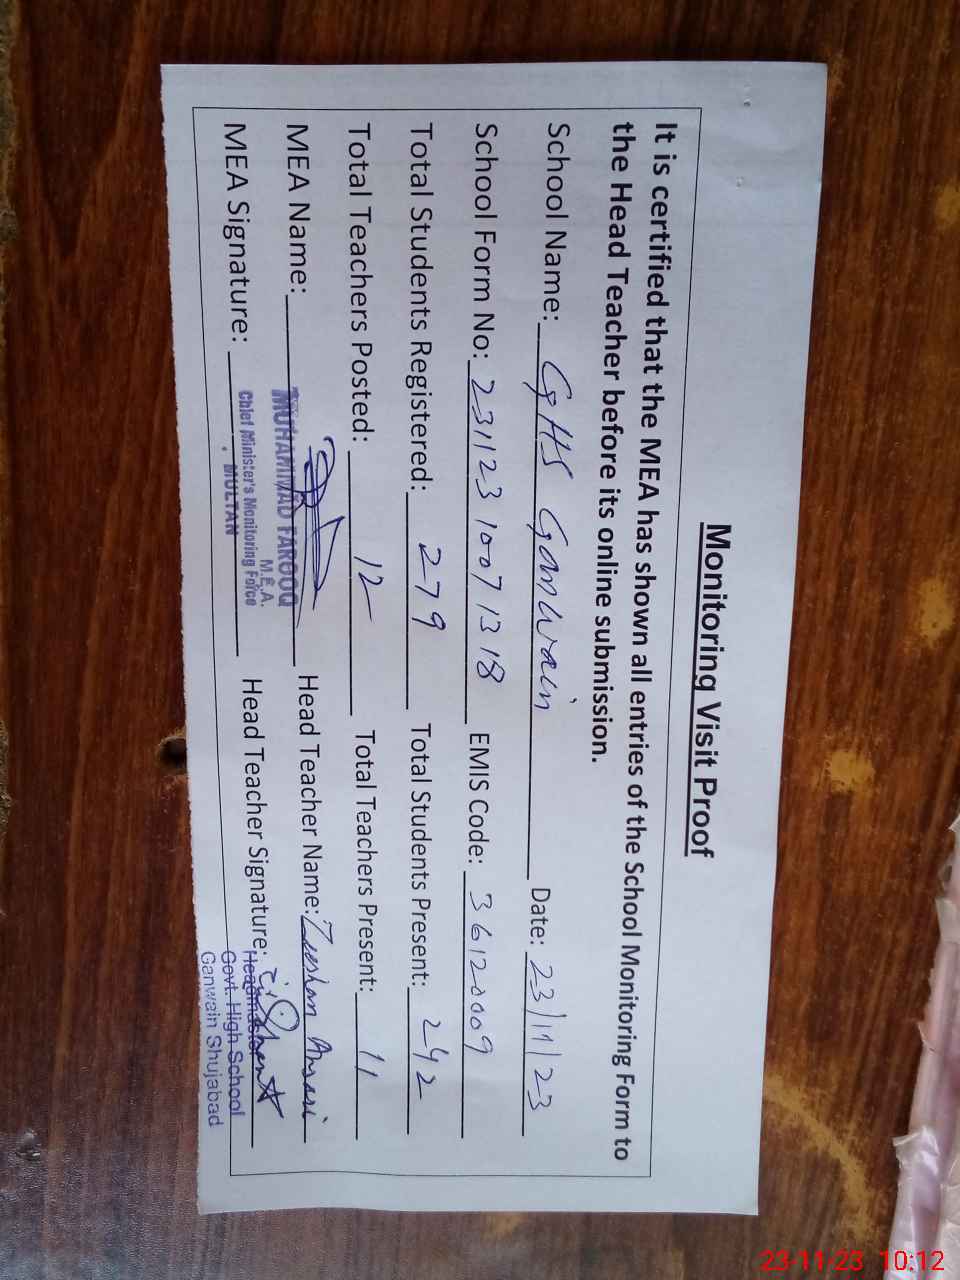 Monitoring Visit Proof
It is certified that the MEA has shown all entries of the School Monitoring Form to
the Head Teacher before its online submission.
School Name: GHS Ganwain Date: 23/11/23
School Form No: 231123 1007 1318 EMIS Code: 36120009
Total Students Registered: 279 Total Students Present: 242
Total Teachers Posted: 12 Total Teachers Present: 11
MEA Name: MUHAMMAD FAROOQ Head Teacher Name: Zeeshan Ansari
M.E.A.
MEA Signature: Chief Minister's Monitoring Force Head Teacher Signature:
MULTAN
Headmaster
Govt. High School
Ganwain Shujabad
23-11-23 10:12